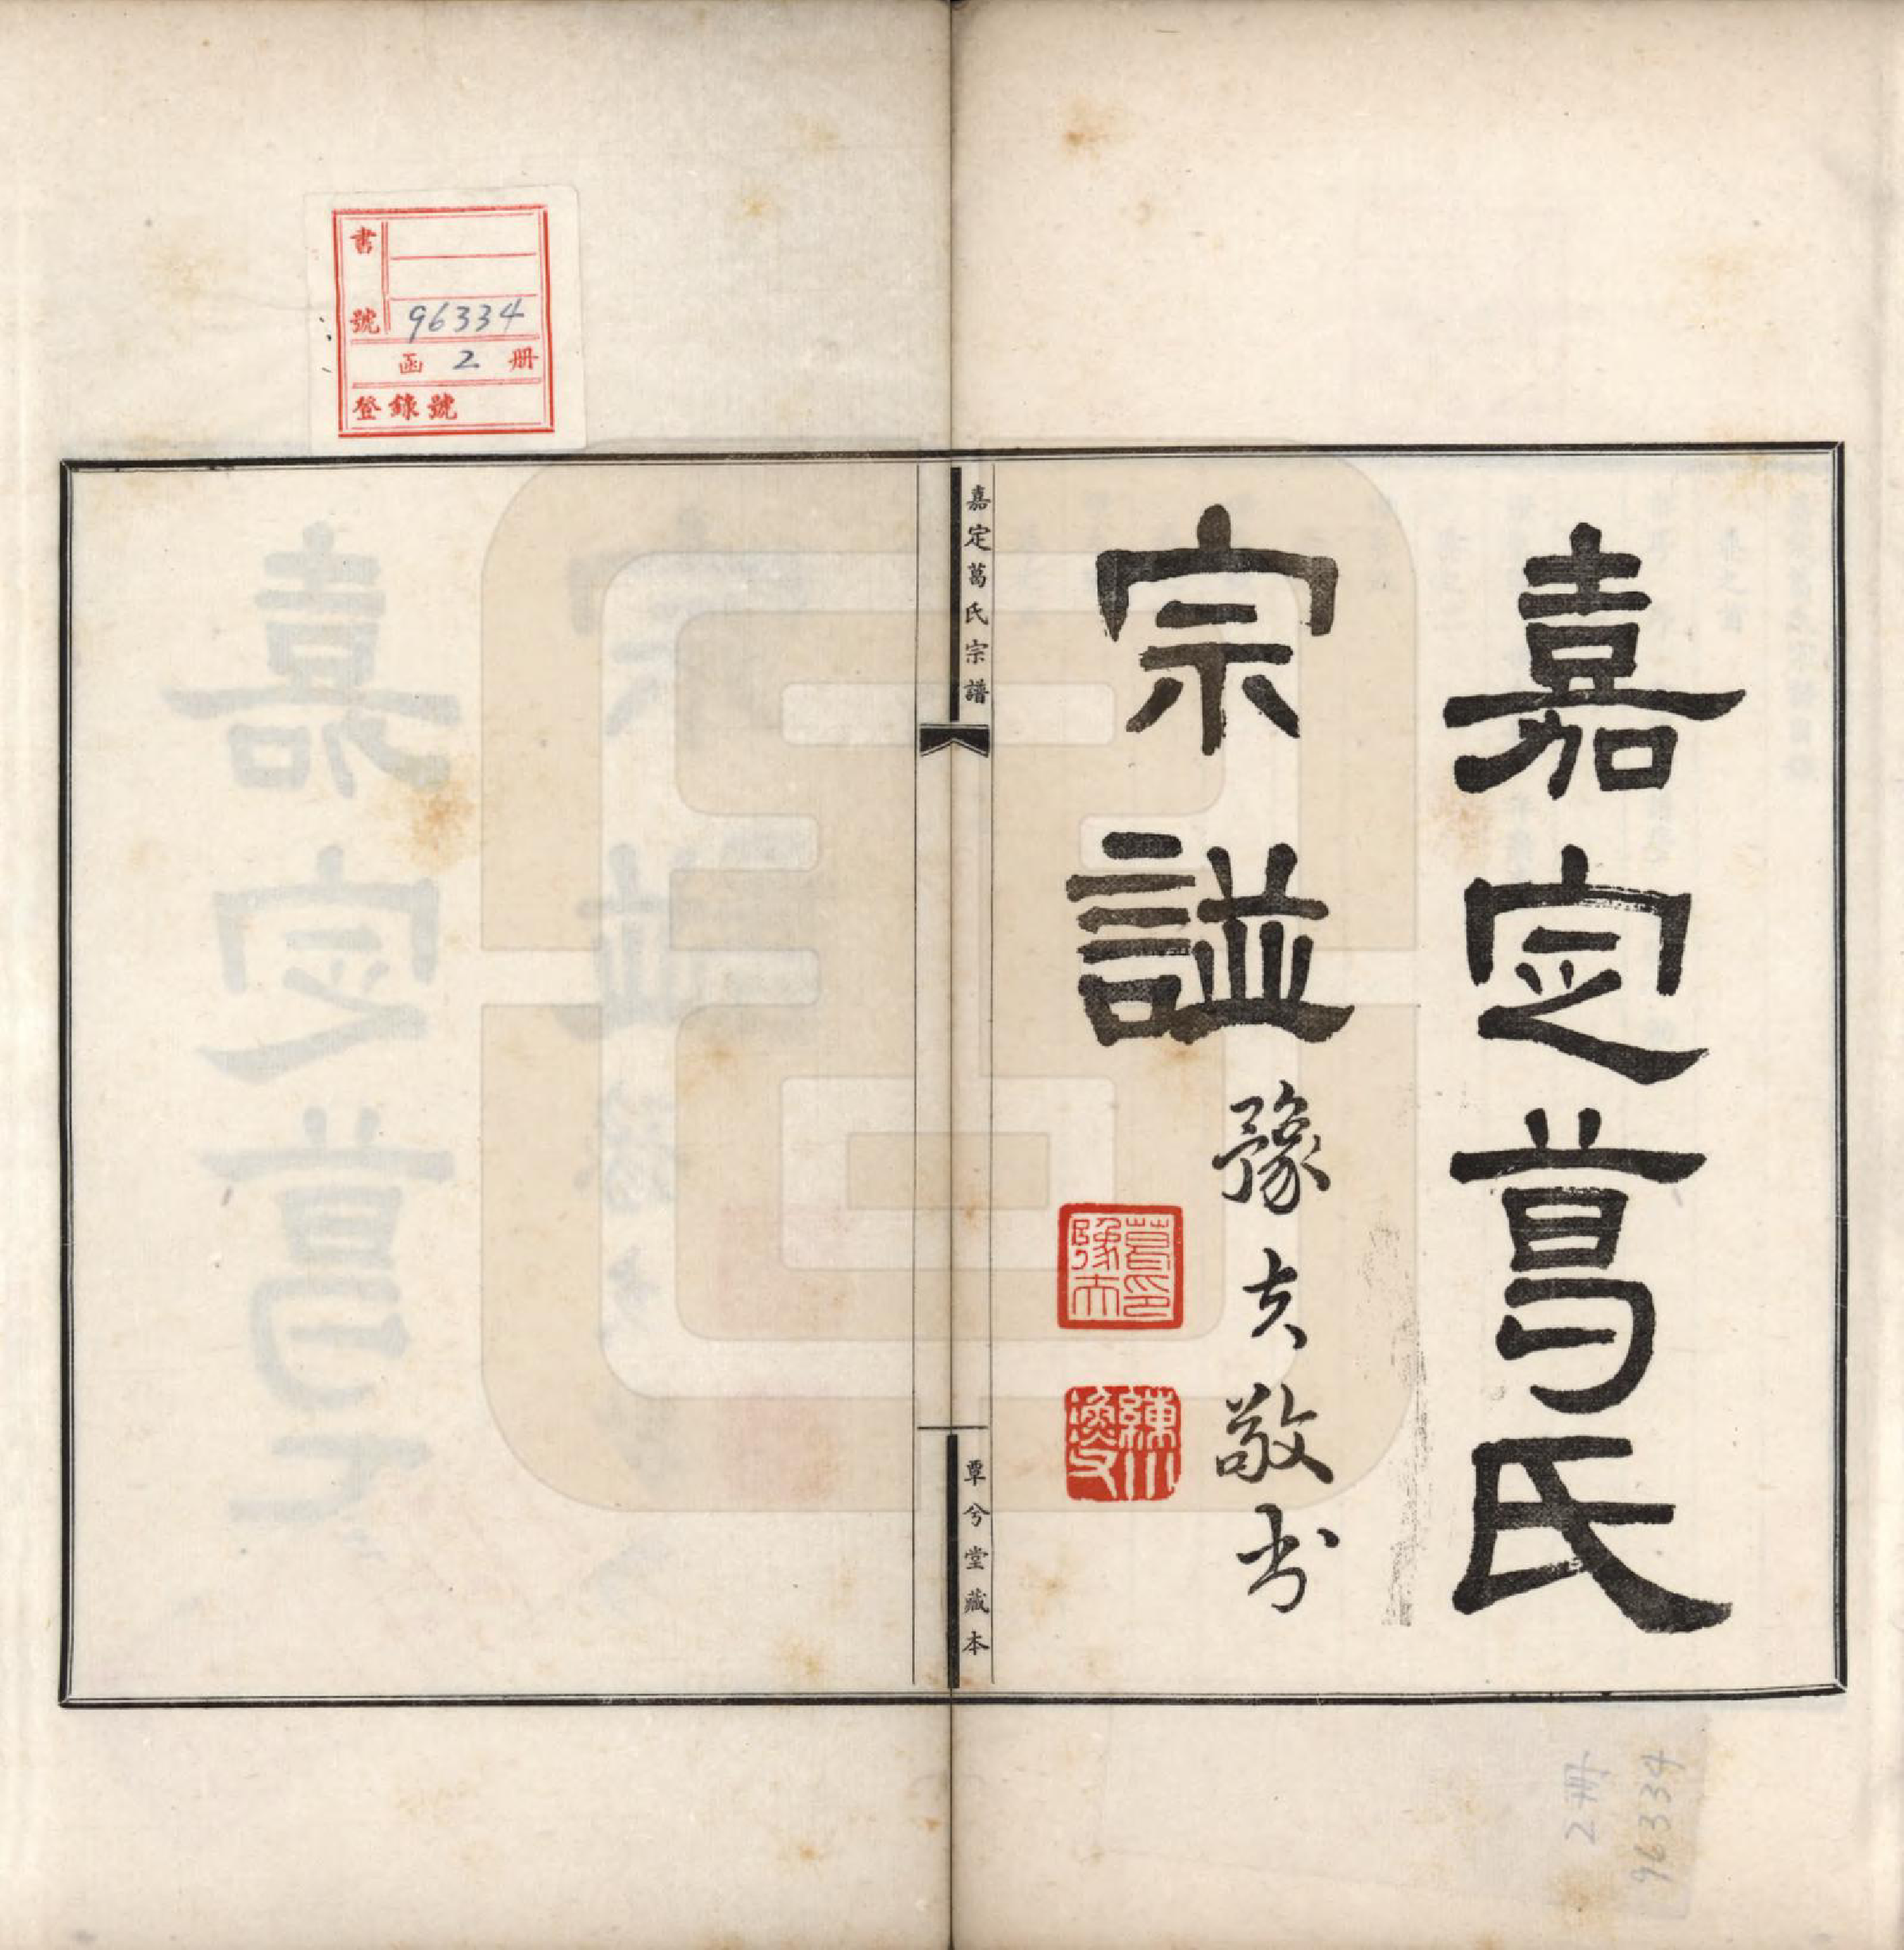 嘉定葛氏
宗谥
豫夫敬书
葛印豫夫
練川漁父
嘉定葛氏宗譜
覃兮堂藏本
書號 96334
函 2 册
登錄號
2冊
96334